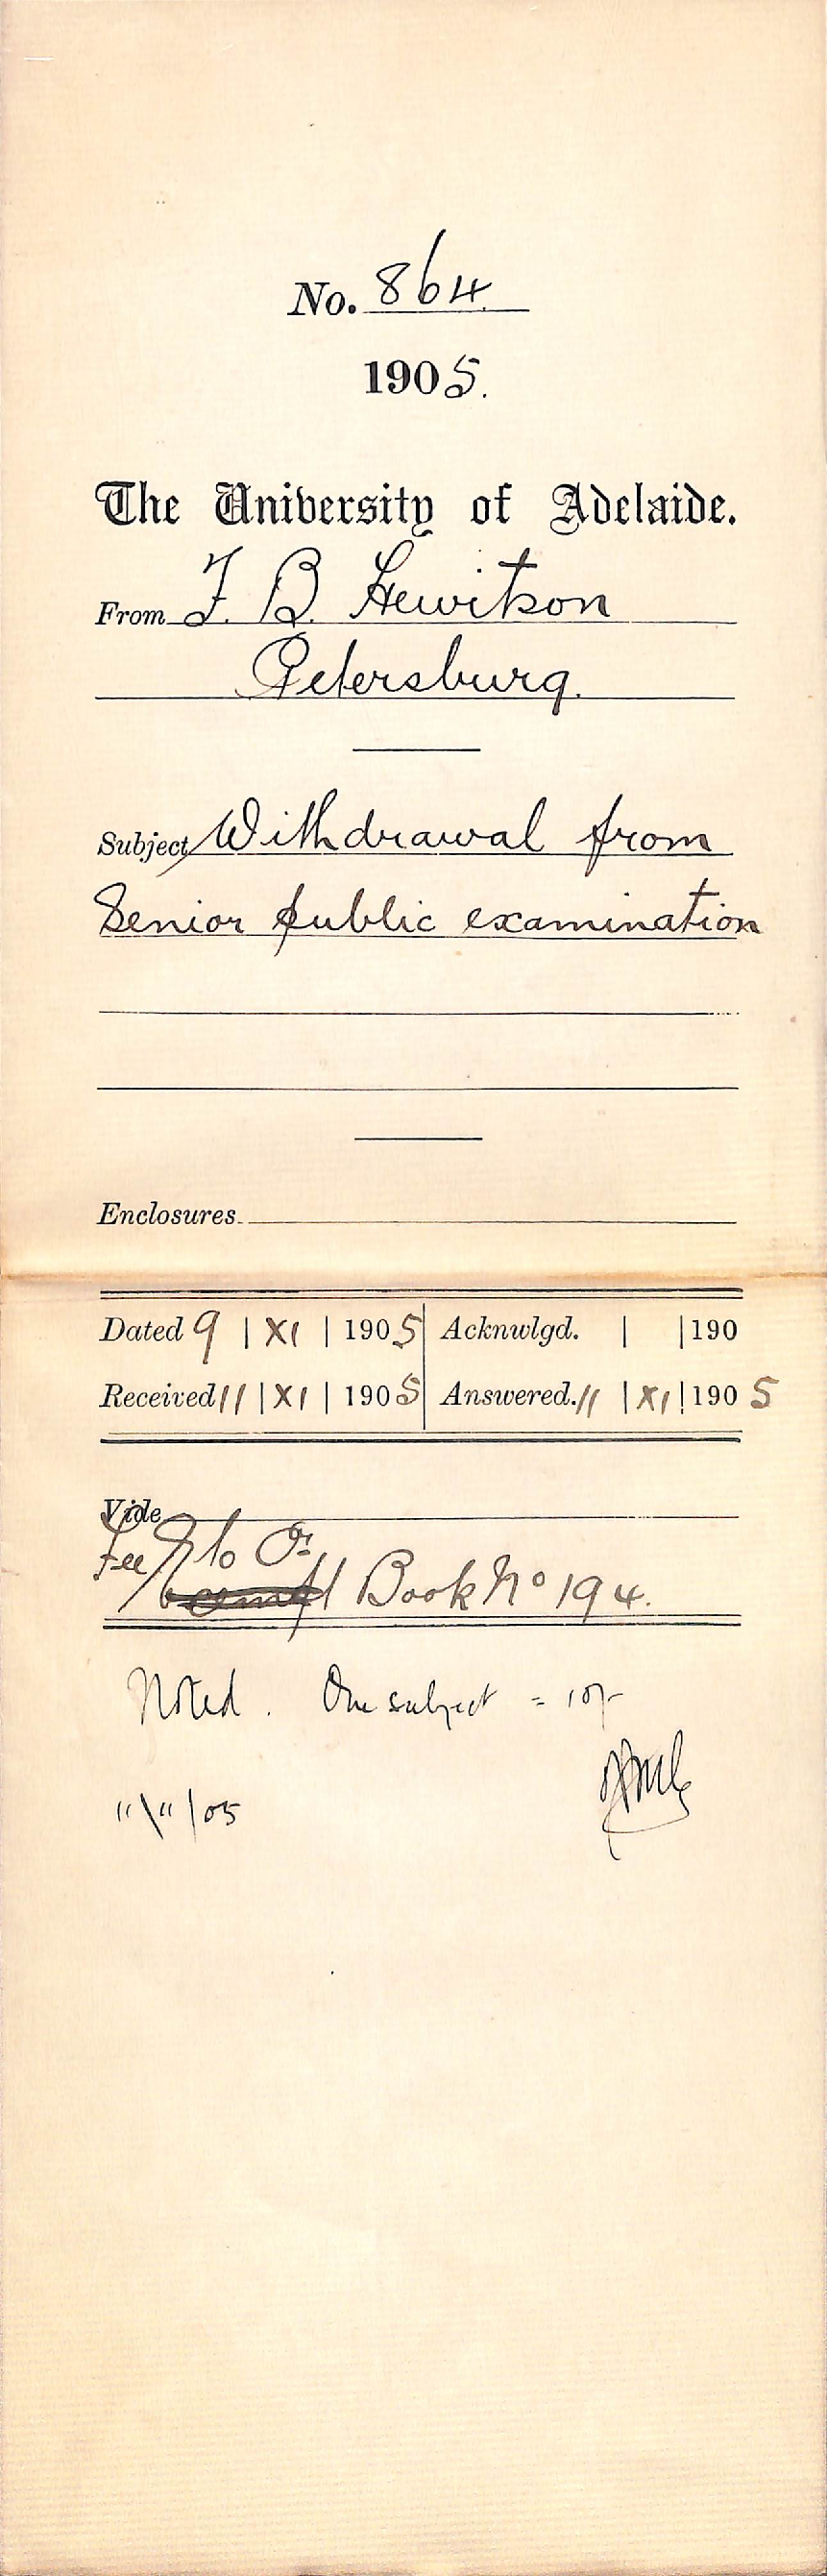 No. 864.
1905.
The University of Adelaide.
From F. B. Hewitson
Petersburg.
Subject Withdrawal from
Senior public examination
Enclosures.
Dated 9 | XI | 1905 Acknwlgd. | | 190
Received 11 | XI | 1905 Answered. 11 | XI | 1905
Vide
Fee
Book No 194.
Noted. One subject = 10/-
11/11/05